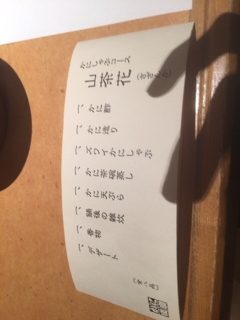 かにしゃぶコース
山茶花（さざんか）
一、かに酢
一、かに造り
一、ズワイかにしゃぶ
一、かに茶碗蒸し
一、かに天ぷら
一、鍋後の雑炊
一、香物
一、デザート